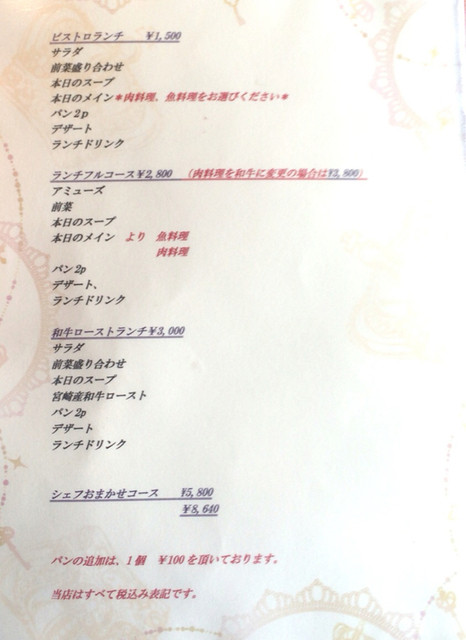 ビストロランチ　　¥1,500
サラダ
前菜盛り合わせ
本日のスープ
本日のメイン＊肉料理、魚料理をお選びください＊
パン2p
デザート
ランチドリンク
ランチフルコース¥2,800　（肉料理を和牛に変更の場合は¥3,800）
アミューズ
前菜
本日のスープ
本日のメイン　より　魚料理
肉料理
パン2p
デザート、
ランチドリンク
和牛ローストランチ¥3,000
サラダ
前菜盛り合わせ
本日のスープ
宮崎産和牛ロースト
パン2p
デザート
ランチドリンク
シェフおまかせコース　　¥5,800
¥8,640
パンの追加は、1個　¥100を頂いております。
当店はすべて税込み表記です。